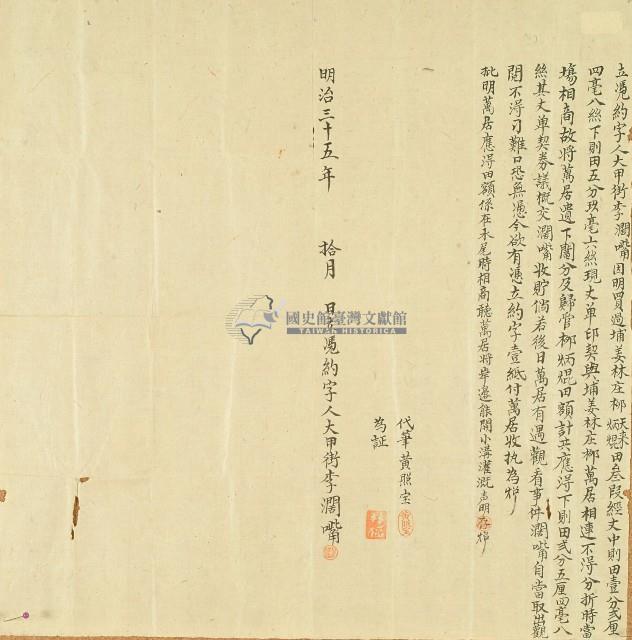 立憑約字人大甲街李濶嘴因明買過埔姜林庄柳天來炳焜田叁段經丈中則田壹分弍厘
四毫八絲下則田五分玖毫六絲現丈单印契與埔姜林庄柳萬居相連不得分折時當
塲相商故將萬居遺下鬮分及歸管柳炳焜田額計共應得下則田弍分五厘四毫八
絲其丈单契券議概交濶嘴收貯倘若後日萬居有遇觀看事件濶嘴自當取出觀
閲不得刁難口恐無憑今欲有憑立約字壹紙付萬居收执為炤
批明萬居應得田額係在禾尾時相商聽萬居將岸邊能開小溝灌溉声明存炤
代筆黃照宝
為証
明治三十五年 拾月 日立憑約字人大甲街李濶嘴
國史館臺灣文獻館
TAIWAN HISTORICA